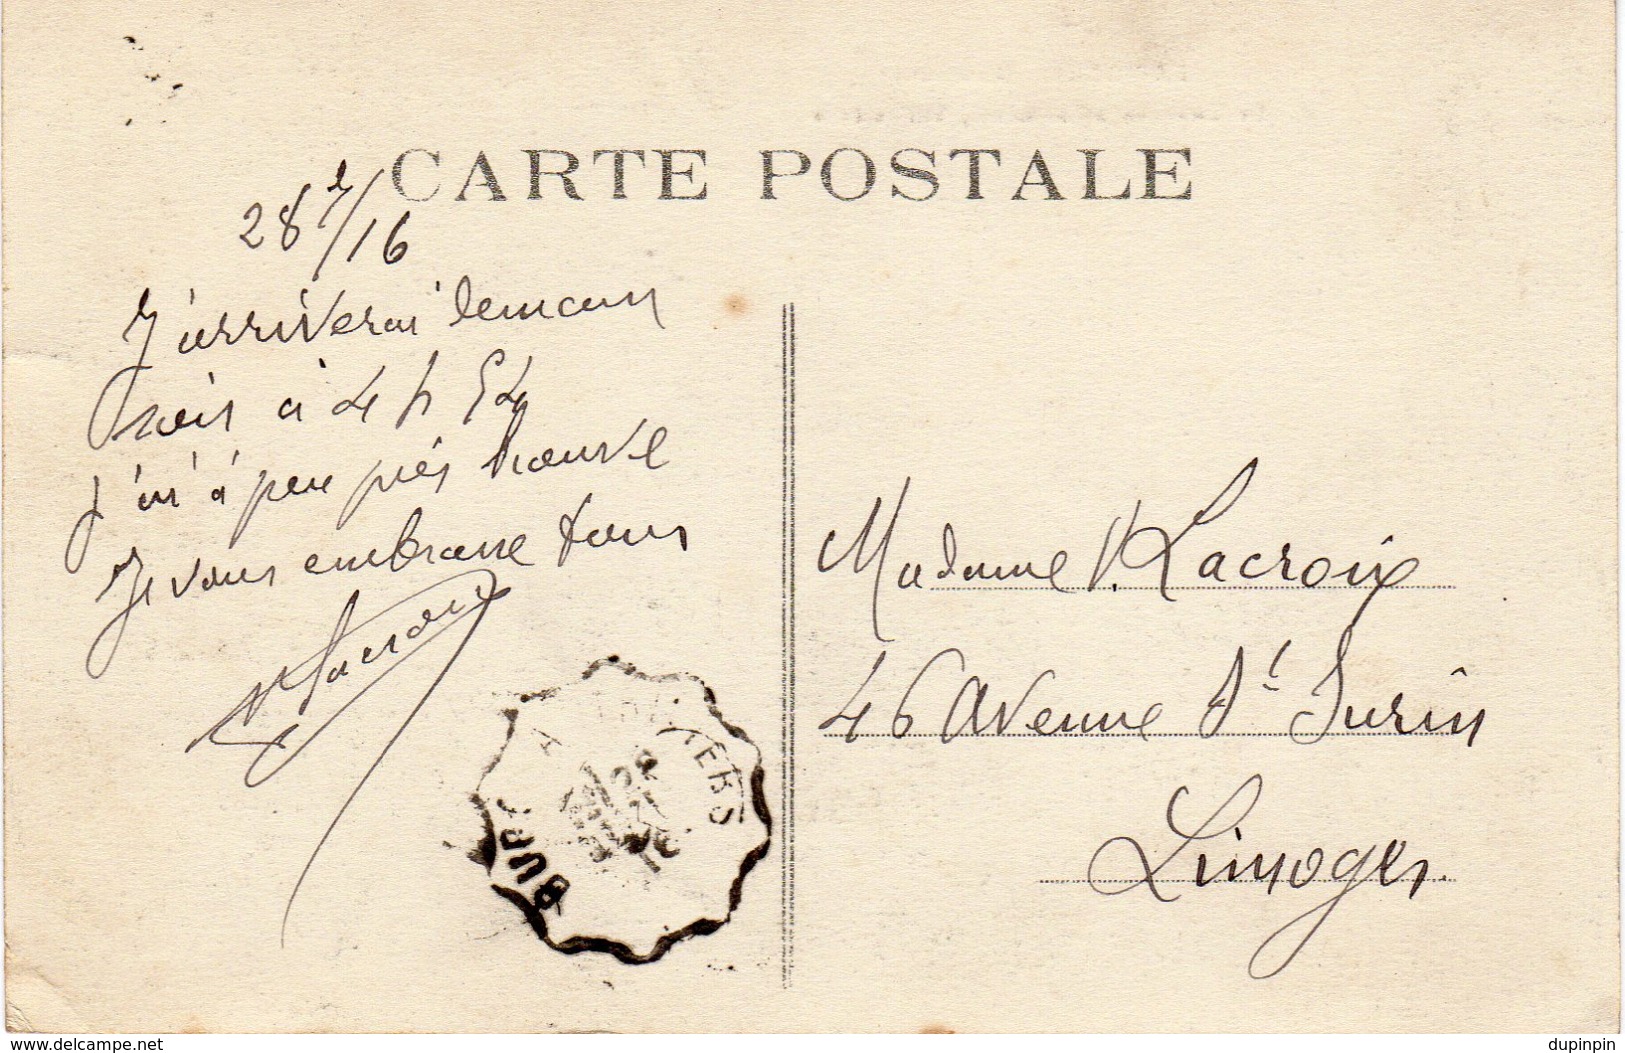 CARTE POSTALE
28 7/16
J'arriverai demain
soir à 4 h 54
J'ai à peu près trouvé
Je vous embrasse tous
Lacroix
Madame V. Lacroix
46 Avenue St Surin
Limoges.
A
BU
www.delcampe.net
dupinpin